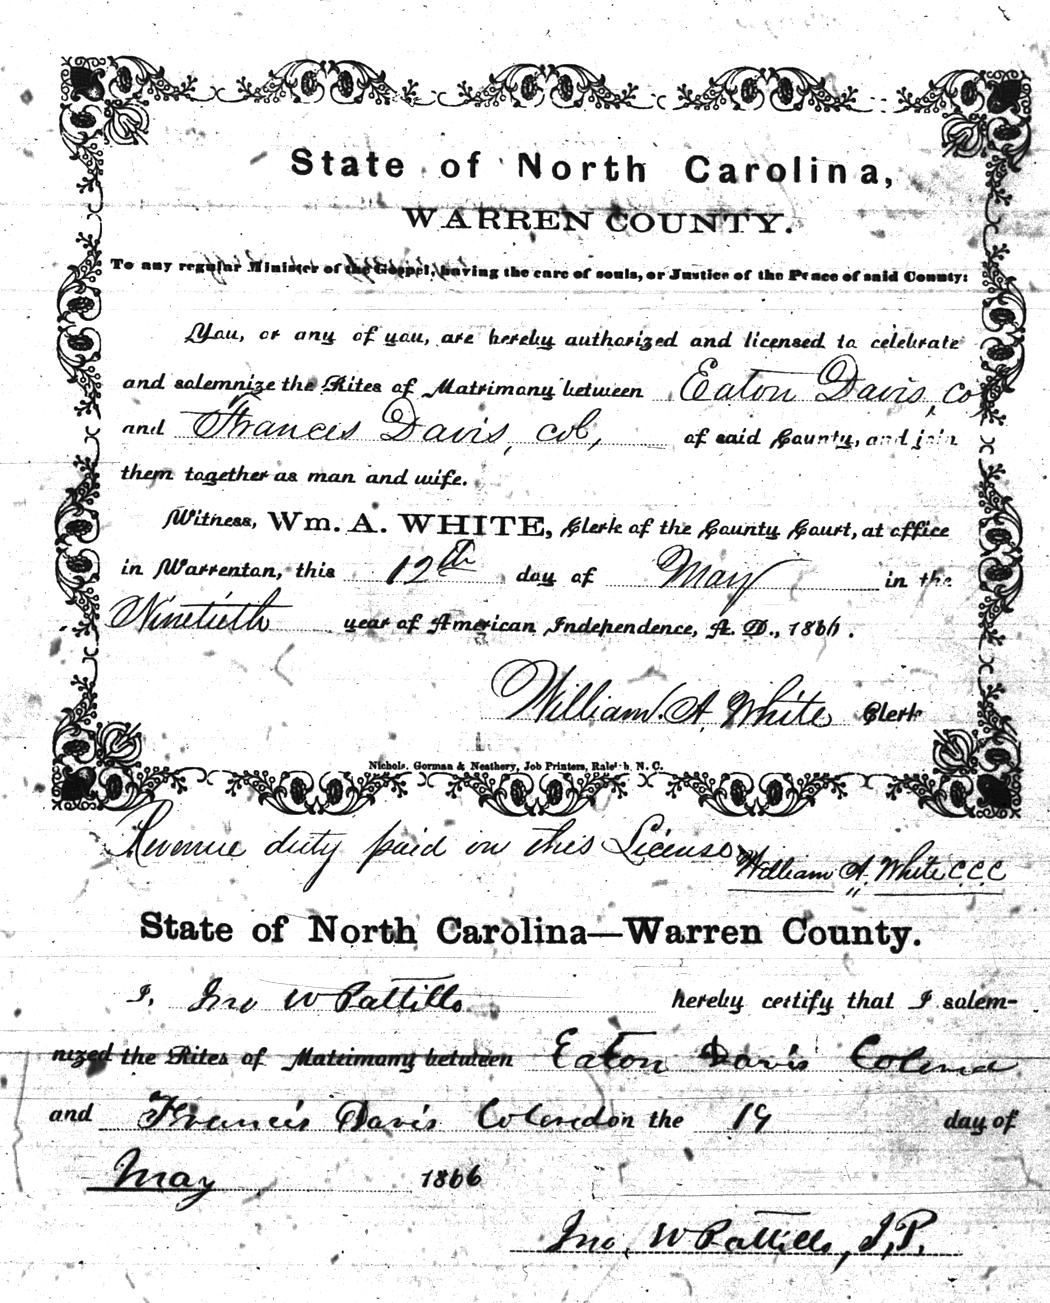 State of North Carolina,
WARREN COUNTY.
To any regular Minister of the Gospel, having the care of souls, or Justice of the Peace of said County:
You, or any of you, are hereby authorized and licensed to celebrate
and solemnize the Rites of Matrimony between Eaton Davis, co
and Francis Davis, col, of said County, and join
them together as man and wife.
Witness, Wm. A. WHITE, Clerk of the County Court, at office
in Warrenton, this 12th day of May in the
Ninetieth year of American Independence, A. D., 1866.
William A. White Clerk
Nichols, Gorman & Neathery, Job Printers, Raleigh, N. C.
Revenue duty paid on this License
William A. White C.C.C
State of North Carolina—Warren County.
I, Jno W Pattillo hereby certify that I solem-
nized the Rites of Matrimony between Eaton Davis Colored
and Francis Davis Colored on the 19 day of
May 1866
Jno, W Pattillo, J,P.